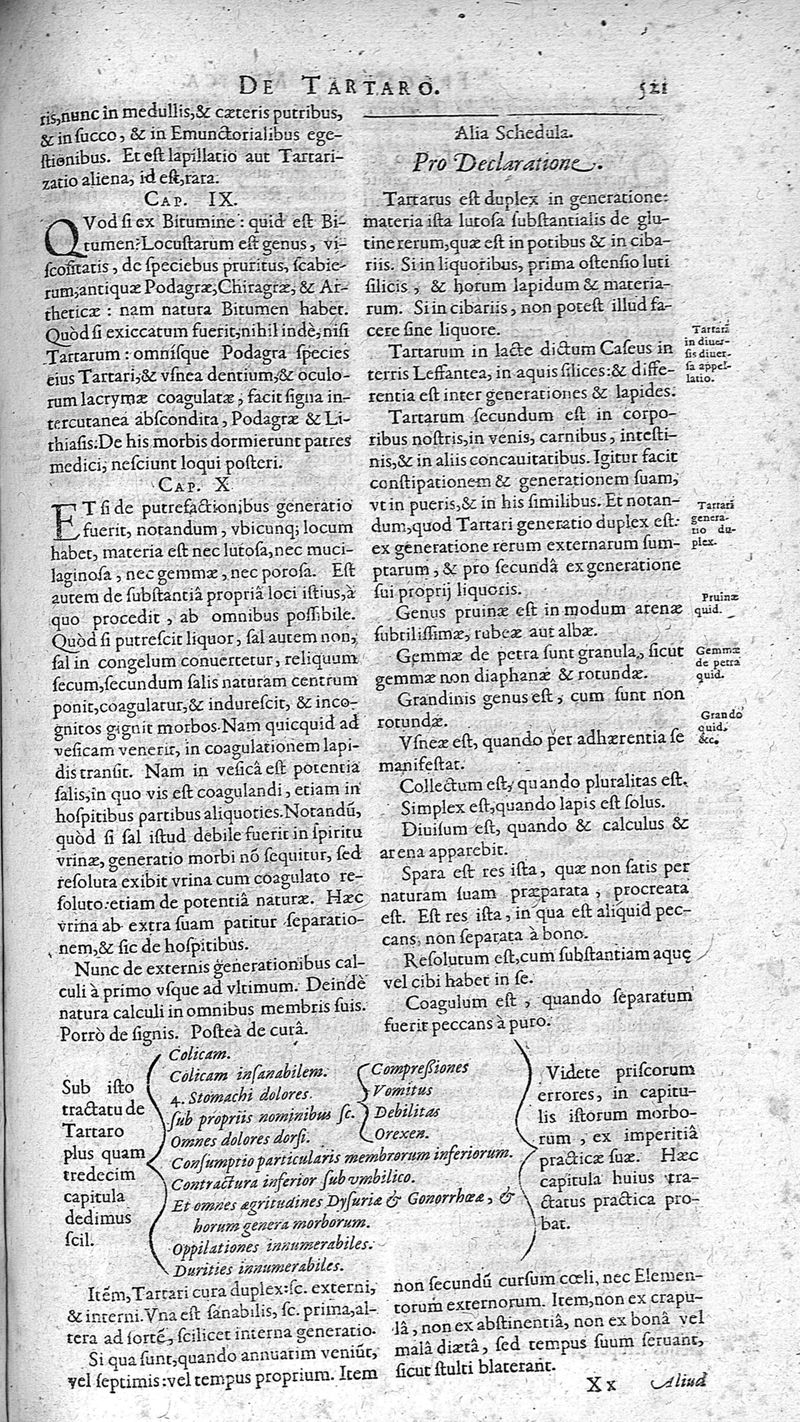 DE TARTARO. 521
ris,nunc in medullis,& cæteris putribus,
& in ſucco, & in Emunctorialibus ege-
ſtionibus. Et eſt lapillatio aut Tartari-
zatio aliena, id eſt,rara.
CAP. IX.
QVod ſi ex Bitumine: quid eſt Bi-
tumen?Locuſtarum eſt genus, vi-
ſcoſitatis, de ſpeciebus pruritus, ſcabie-
rum,antiquæ Podagræ,Chiragræ,& Ar-
theticæ: nam natura Bitumen habet.
Quòd ſi exiccatum fuerit,nihil indè,niſi
Tartarum: omníſque Podagra ſpecies
eius Tartari,& vſnea dentium,& oculo-
rum lacrymæ coagulatæ, facit ſigna in-
tercutanea abſcondita, Podagræ & Li-
thiaſis:De his morbis dormierunt patres
medici, neſciunt loqui poſteri.
CAP. X
ET ſi de putrefactionibus generatio
fuerit, notandum, vbicunq; locum
habet, materia eſt nec lutoſa,nec muci-
laginoſa, nec gemmæ, nec poroſa. Eſt
autem de ſubſtantiâ propriâ loci iſtius,à
quo procedit, ab omnibus poſſibile.
Quòd ſi putreſcit liquor, ſal autem non,
ſal in congelum conuertetur, reliquum
ſecum,ſecundum ſalis naturam centrum
ponit,coagulatur,& indureſcit, & inco-
gnitos gignit morbos.Nam quicquid ad
veſicam venerit, in coagulationem lapi-
dis tranſit. Nam in veſicâ eſt potentia
ſalis,in quo vis eſt coagulandi, etiam in
hoſpitibus partibus aliquoties.Notandū,
quòd ſi ſal iſtud debile fuerit in ſpiritu
vrinæ, generatio morbi nō ſequitur, ſed
reſoluta exibit vrina cum coagulato re-
ſoluto:etiam de potentiâ naturæ. Hæc
vrina ab extra ſuam patitur ſeparatio-
nem,& ſic de hoſpitibus.
Nunc de externis generationibus cal-
culi à primo vſque ad vltimum. Deindè
natura calculi in omnibus membris ſuis.
Porrò de ſignis. Poſteà de curâ.
Alia Schedula.
Pro Declaratione.
Tartarus eſt duplex in generatione:
materia iſta lutoſa ſubſtantialis de glu-
tine rerum,quæ eſt in potibus & in ciba-
riis. Si in liquoribus, prima oſtenſio luti
ſilicis, & horum lapidum & materia-
rum. Si in cibariis, non poteſt illud fa-
cere ſine liquore.
Tartarum in lacte dictum Caſeus in
terris Leffantea, in aquis ſilices:& diffe-
rentia eſt inter generationes & lapides.
Tartarum ſecundum eſt in corpo-
ribus noſtris,in venis, carnibus, inteſti-
nis,& in aliis concauitatibus. Igitur facit
conſtipationem & generationem ſuam,
vt in pueris,& in his ſimilibus. Et notan-
dum,quod Tartari generatio duplex eſt:
ex generatione rerum externarum ſum-
ptarum, & pro ſecundâ ex generatione
ſui proprij liquoris.
Genus pruinæ eſt in modum arenæ
ſubtiliſſimæ, rubeæ aut albæ.
Gemmæ de petra ſunt granula, ſicut
gemmæ non diaphanæ & rotundæ.
Grandinis genus eſt, cum ſunt non
rotundæ.
Vſneæ eſt, quando per adhærentia ſe
manifeſtat.
Collectum eſt, quando pluralitas eſt.
Simplex eſt,quando lapis eſt ſolus.
Diuiſum eſt, quando & calculus &
arena apparebit.
Spara eſt res iſta, quæ non ſatis per
naturam ſuam præparata, procreata
eſt. Eſt res iſta, in qua eſt aliquid pec-
cans, non ſeparata à bono.
Reſolutum eſt,cum ſubſtantiam aquę
vel cibi habet in ſe.
Coagulum eſt, quando ſeparatum
fuerit peccans à puro.
Tartara
in diuer-
ſis diuer-
ſa appel-
latio.
Tartari
genera-
tio du-
plex.
Pruinæ
quid.
Gemmæ
de petra
quid.
Grando
quid.
&c.
Sub iſto
tractatu de
Tartaro
plus quam
tredecim
capitula
dedimus
ſcil.
Colicam.
Colicam inſanabilem.
4. Stomachi dolores.
ſub propriis nominibus ſc.
Omnes dolores dorſi.
Conſumptio particularis membrorum inferiorum.
Contractura inferior ſub vmbilico.
Et omnes ægritudines Dyſuriæ & Gonorrhœæ, &
horum genera morborum.
Oppilationes innumerabiles.
Durities innumerabiles.
Compreſſiones
Vomitus
Debilitas
Orexen.
Videte priſcorum
errores, in capitu-
lis iſtorum morbo-
rum, ex imperitiâ
practicæ ſuæ. Hæc
capitula huius tra-
ctatus practica pro-
bat.
Itēm,Tartari cura duplex:ſc. externi,
& interni.Vna eſt ſanabilis, ſc. prima,al-
tera ad ſortē, ſcilicet interna generatio.
Si qua ſunt,quando annuatim veniūt,
vel ſeptimis:vel tempus proprium. Item
non ſecundū curſum cœli, nec Elemen-
torum externorum. Item,non ex crapu-
lâ, non ex abſtinentiâ, non ex bonâ vel
malâ diætâ, ſed tempus ſuum ſeruant,
ſicut ſtulti blaterant.
Xx Aliud